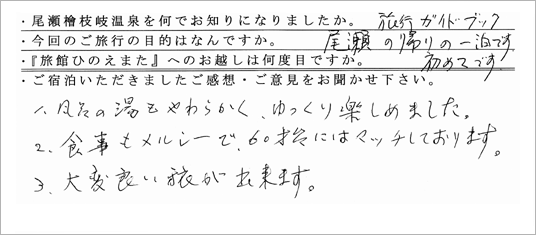 ・尾瀬檜枝岐温泉を何でお知りになりましたか。 旅行ガイドブック
・今回のご旅行の目的はなんですか。 尾瀬の帰りの一泊です
・『旅館ひのえまた』へのお越しは何度目ですか。 初めてです
・ご宿泊いただきましたご感想・ご意見をお聞かせ下さい。
1. の湯もやわらかく、ゆっくり楽しめました。
2. 食事もメルシーで、60才にはマッチしております。
3. 大変良い旅が出来ます。